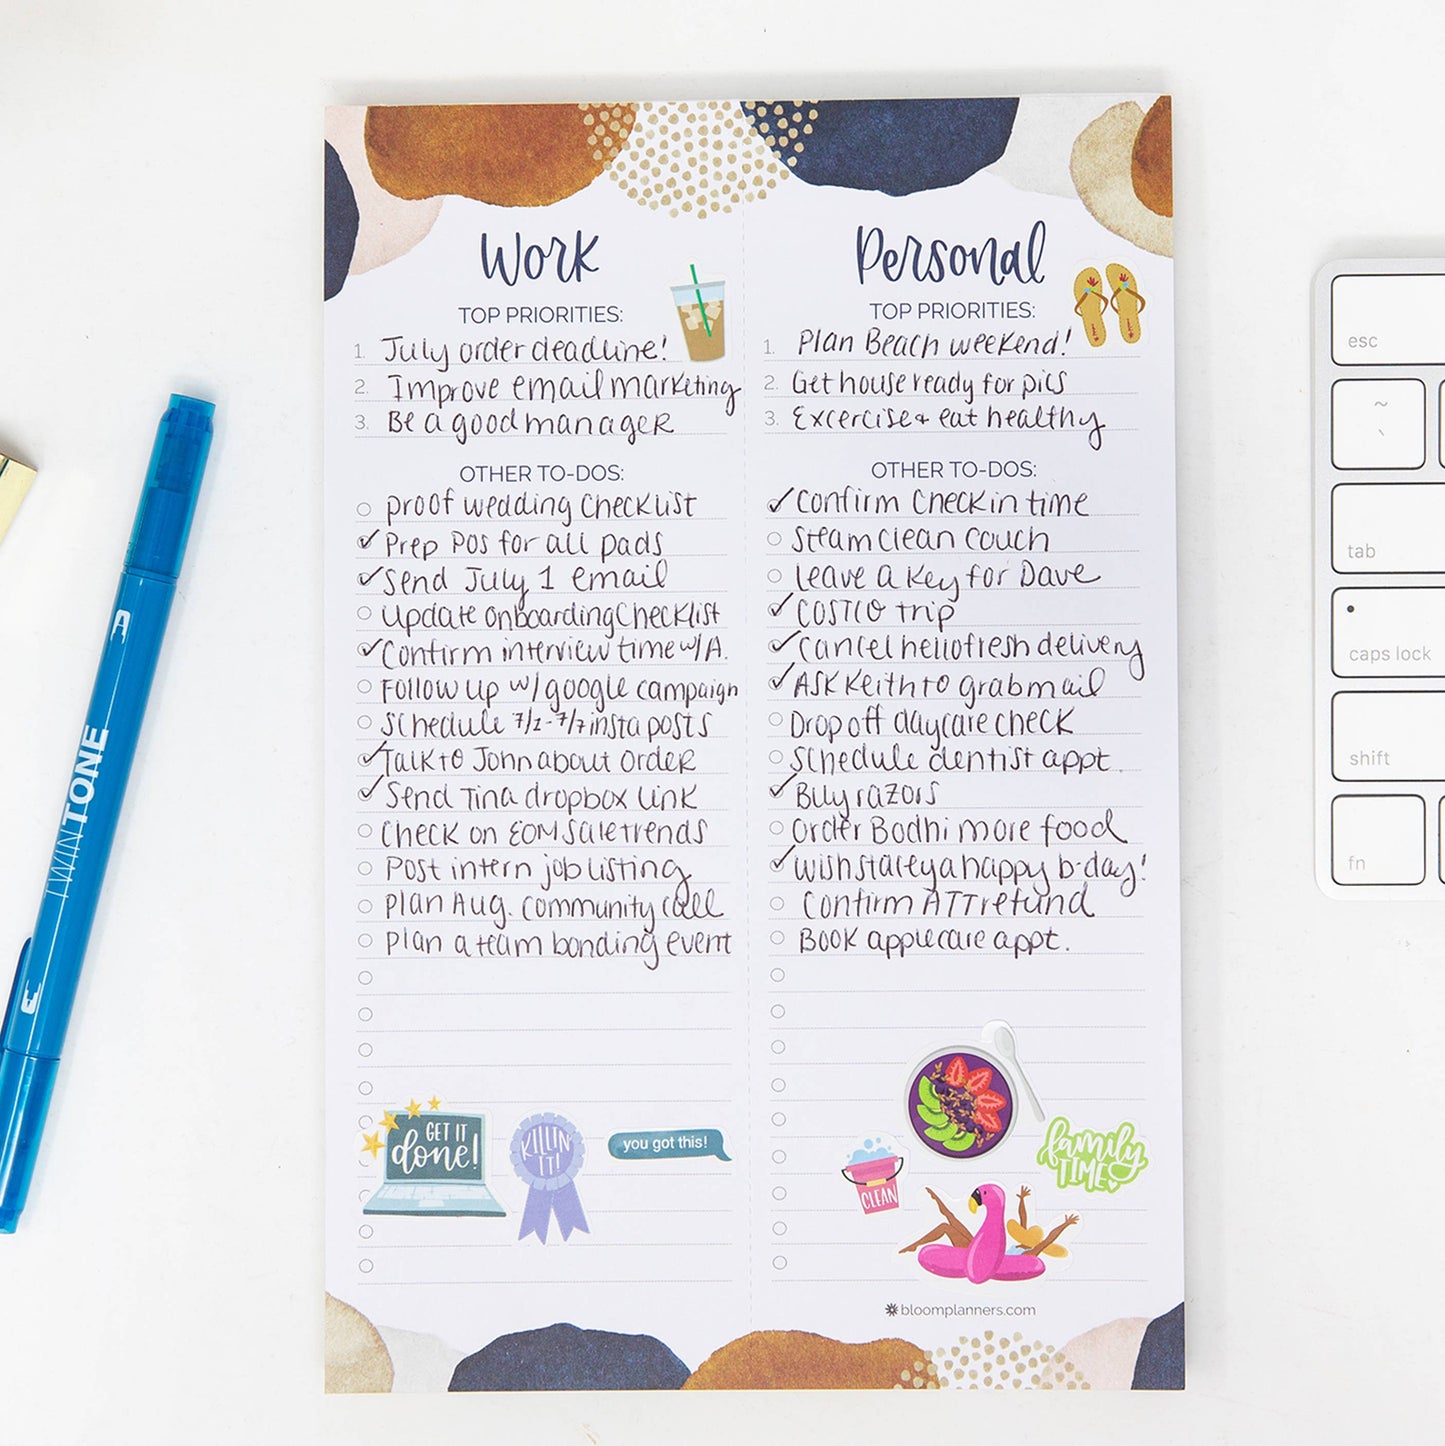 Work
TOP PRIORITIES:
1. July order deadline!
2. Improve email marketing
3. Be a good manager
OTHER TO-DOS:
proof wedding checklist
Prep POs for all pads
Send July 1 email
Update onboarding checklist
Confirm interview time w/ A.
Follow up w/ google campaign
Schedule 7/2-7/7 insta posts
Talk to John about order
Send Tina dropbox link
Check on EOM sale trends
Post intern job listing
Plan Aug. community call
plan a team bonding event
GET IT
done!
KILLIN'
IT!
you got this!
Personal
TOP PRIORITIES:
1. Plan Beach weekend!
2. Get house ready for pics
3. Excercise + eat healthy
OTHER TO-DOS:
Confirm Check in time
Steam clean couch
leave a key for Dave
COSTCO trip
Cancel hellofresh delivery
ASK Keith to grab mail
Drop off daycare check
Schedule dentist appt.
Buy razors
Order Bodhi more food
Wish stacey a happy b-day!
Confirm ATT refund
Book applecare appt.
CLEAN
family
TIME
bloomplanners.com
TWINTONE
A
esc
~
`
tab
caps lock
shift
fn